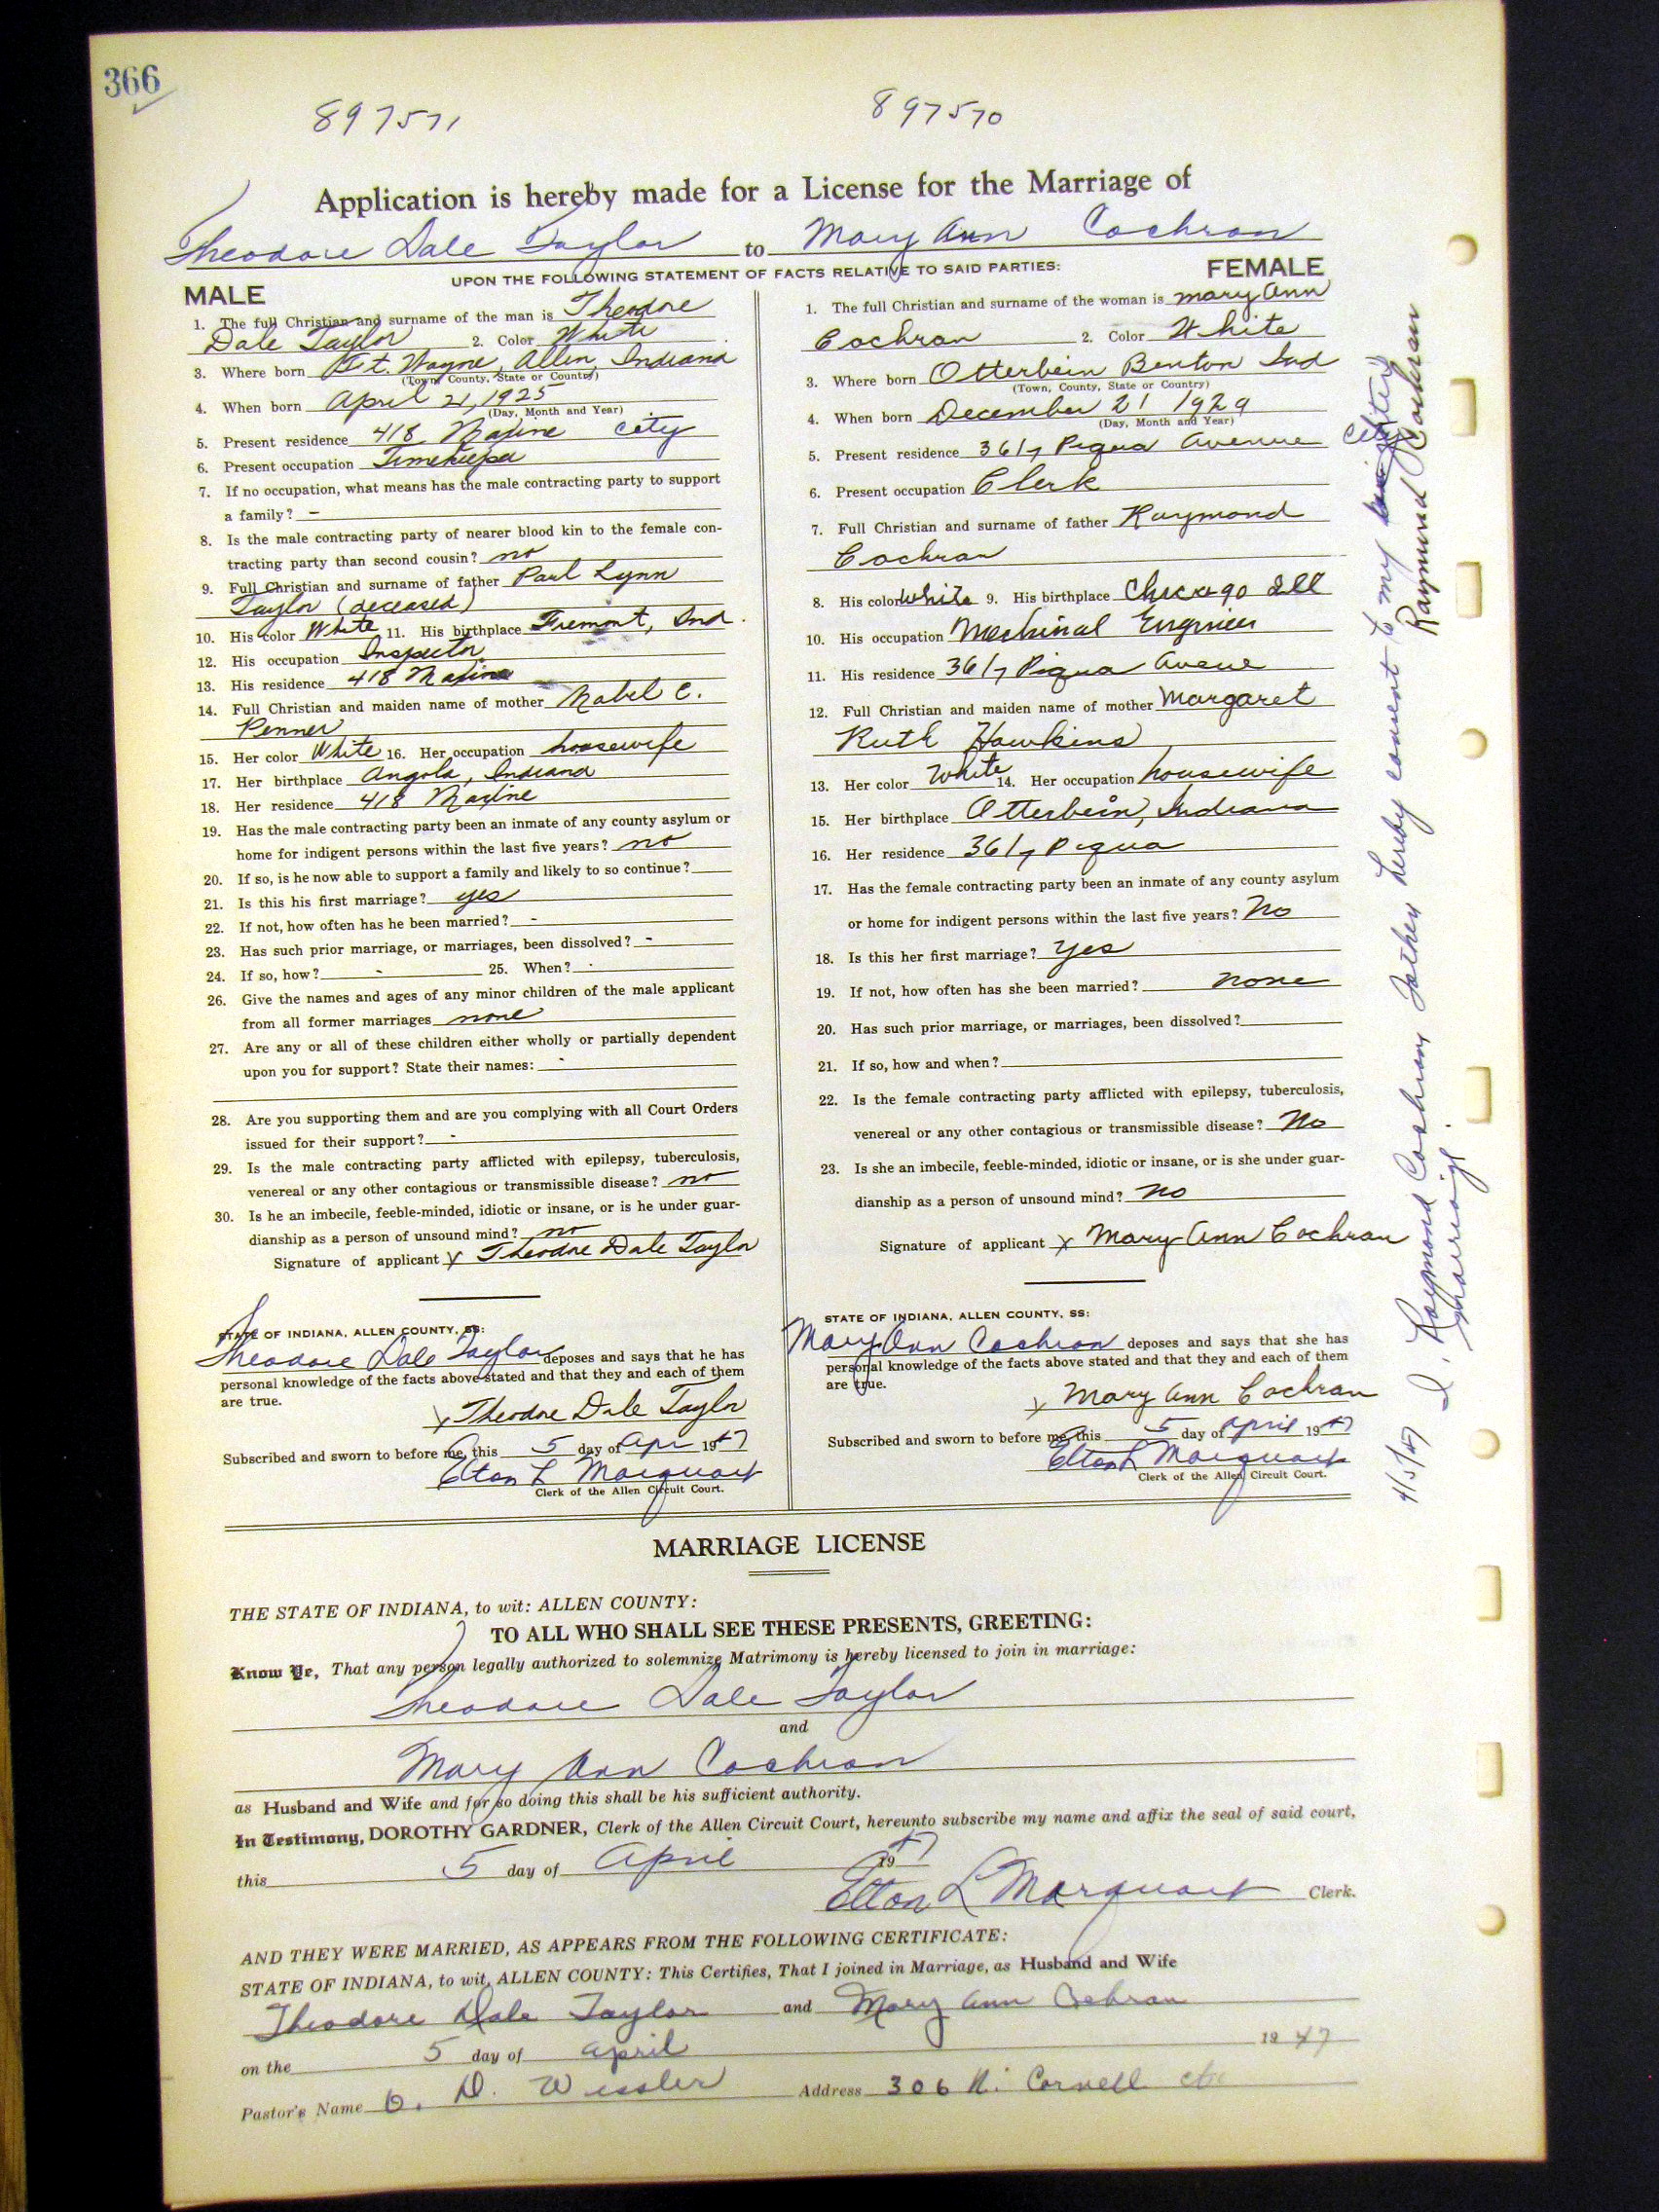 366
897571
897570
Application is hereby made for a License for the Marriage of
Theodore Dale Taylor to Mary Ann Cochran
UPON THE FOLLOWING STATEMENT OF FACTS RELATIVE TO SAID PARTIES:
MALE
1. The full Christian and surname of the man is Theodore
Dale Taylor 2. Color White
3. Where born Ft. Wayne, Allen, Indiana
(Town, County, State or Country)
4. When born April 21, 1925
(Day, Month and Year)
5. Present residence 418 Maxine city
6. Present occupation Timekeeper
7. If no occupation, what means has the male contracting party to support
a family? -
8. Is the male contracting party of nearer blood kin to the female con-
tracting party than second cousin? no
9. Full Christian and surname of father Paul Lynn
Taylor (deceased)
10. His color White 11. His birthplace Fremont, Ind.
12. His occupation Inspector
13. His residence 418 Maxine
14. Full Christian and maiden name of mother Mabel C.
Penner
15. Her color White 16. Her occupation housewife
17. Her birthplace Angola, Indiana
18. Her residence 418 Maxine
19. Has the male contracting party been an inmate of any county asylum or
home for indigent persons within the last five years? no
20. If so, is he now able to support a family and likely to so continue?
21. Is this his first marriage? yes
22. If not, how often has he been married? -
23. Has such prior marriage, or marriages, been dissolved? -
24. If so, how? - 25. When? -
26. Give the names and ages of any minor children of the male applicant
from all former marriages none
27. Are any or all of these children either wholly or partially dependent
upon you for support? State their names: -
28. Are you supporting them and are you complying with all Court Orders
issued for their support? -
29. Is the male contracting party afflicted with epilepsy, tuberculosis,
venereal or any other contagious or transmissible disease? no
30. Is he an imbecile, feeble-minded, idiotic or insane, or is he under guar-
dianship as a person of unsound mind? no
Signature of applicant x Theodore Dale Taylor
STATE OF INDIANA, ALLEN COUNTY, SS:
Theodore Dale Taylor deposes and says that he has
personal knowledge of the facts above stated and that they and each of them
are true.
x Theodore Dale Taylor
Subscribed and sworn to before me, this 5 day of Apr 1947
Elton L Marquart
Clerk of the Allen Circuit Court.
FEMALE
1. The full Christian and surname of the woman is Mary Ann
Cochran 2. Color White
3. Where born Otterbein Benton Ind
(Town, County, State or Country)
4. When born December 21 1929
(Day, Month and Year)
5. Present residence 3617 Piqua Avenue City
6. Present occupation Clerk
7. Full Christian and surname of father Raymond
Cochran
8. His color White 9. His birthplace Chicago Ill
10. His occupation Mechinal Engineer
11. His residence 3617 Piqua Aveue
12. Full Christian and maiden name of mother Margaret
Ruth Hawkins
13. Her color White 14. Her occupation housewife
15. Her birthplace Otterbein, Indiana
16. Her residence 3617 Piqua
17. Has the female contracting party been an inmate of any county asylum
or home for indigent persons within the last five years? No
18. Is this her first marriage? Yes
19. If not, how often has she been married? none
20. Has such prior marriage, or marriages, been dissolved?
21. If so, how and when?
22. Is the female contracting party afflicted with epilepsy, tuberculosis,
venereal or any other contagious or transmissible disease? No
23. Is she an imbecile, feeble-minded, idiotic or insane, or is she under guar-
dianship as a person of unsound mind? No
Signature of applicant x Mary Ann Cochran
STATE OF INDIANA, ALLEN COUNTY, SS:
Mary Ann Cochran deposes and says that she has
personal knowledge of the facts above stated and that they and each of them
are true.
x Mary Ann Cochran
Subscribed and sworn to before me, this 5 day of April 1947
Elton L Marquart
Clerk of the Allen Circuit Court.
4/5/47 I, Raymond Cochran, father hereby consent to my
marriage.
Raymond Cochran
MARRIAGE LICENSE
THE STATE OF INDIANA, to wit: ALLEN COUNTY:
TO ALL WHO SHALL SEE THESE PRESENTS, GREETING:
Know Ye, That any person legally authorized to solemnize Matrimony is hereby licensed to join in marriage:
Theodore Dale Taylor
and
Mary Ann Cochran
as Husband and Wife and for so doing this shall be his sufficient authority.
In Testimony, DOROTHY GARDNER, Clerk of the Allen Circuit Court, hereunto subscribe my name and affix the seal of said court,
this 5 day of April 1947
Elton L Marquart Clerk.
AND THEY WERE MARRIED, AS APPEARS FROM THE FOLLOWING CERTIFICATE:
STATE OF INDIANA, to wit, ALLEN COUNTY: This Certifies, That I joined in Marriage, as Husband and Wife
Theodore Dale Taylor and Mary Ann Cohran
on the 5 day of April 1947
Pastor's Name O. D. Wissler Address 306 N. Cornell